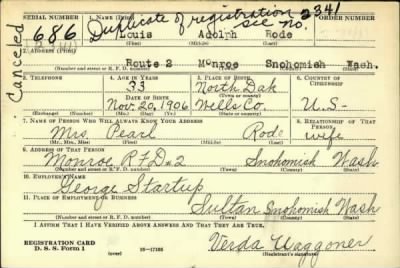 SERIAL NUMBER 1. NAME (Print)
Duplicate of registration see no. 2341
Canceled
686 Louis Adolph Rode
(First) (Middle) (Last)
2. ADDRESS (Print)
Route 2 Monroe Snohomish Wash.
(Number and street or R. F. D. number) (Town) (County) (State)
3. TELEPHONE 4. AGE IN YEARS 5. PLACE OF BIRTH 6. COUNTRY OF CITIZENSHIP
33 North Dak
DATE OF BIRTH (Town or county)
Nov. 20, 1906 Wells Co. U.S-
(Exchange) (Number) (Mo.) (Day) (Yr.) (State or country)
7. NAME OF PERSON WHO WILL ALWAYS KNOW YOUR ADDRESS 8. RELATIONSHIP OF THAT PERSON
Mrs. Pearl Rode wife
(Mr., Mrs., Miss) (First) (Middle) (Last)
9. ADDRESS OF THAT PERSON
Monroe RFD#2 Snohomish Wash
(Number and street or R. F. D. number) (Town) (County) (State)
10. EMPLOYER'S NAME
George Startup
11. PLACE OF EMPLOYMENT OR BUSINESS
Sultan Snohomish Wash
(Number and street or R. F. D. number) (Town) (County) (State)
I AFFIRM THAT I HAVE VERIFIED ABOVE ANSWERS AND THAT THEY ARE TRUE.
REGISTRATION CARD
D. S. S. Form 1 16—17105 Verda Waggoner
(Registrant's signature)